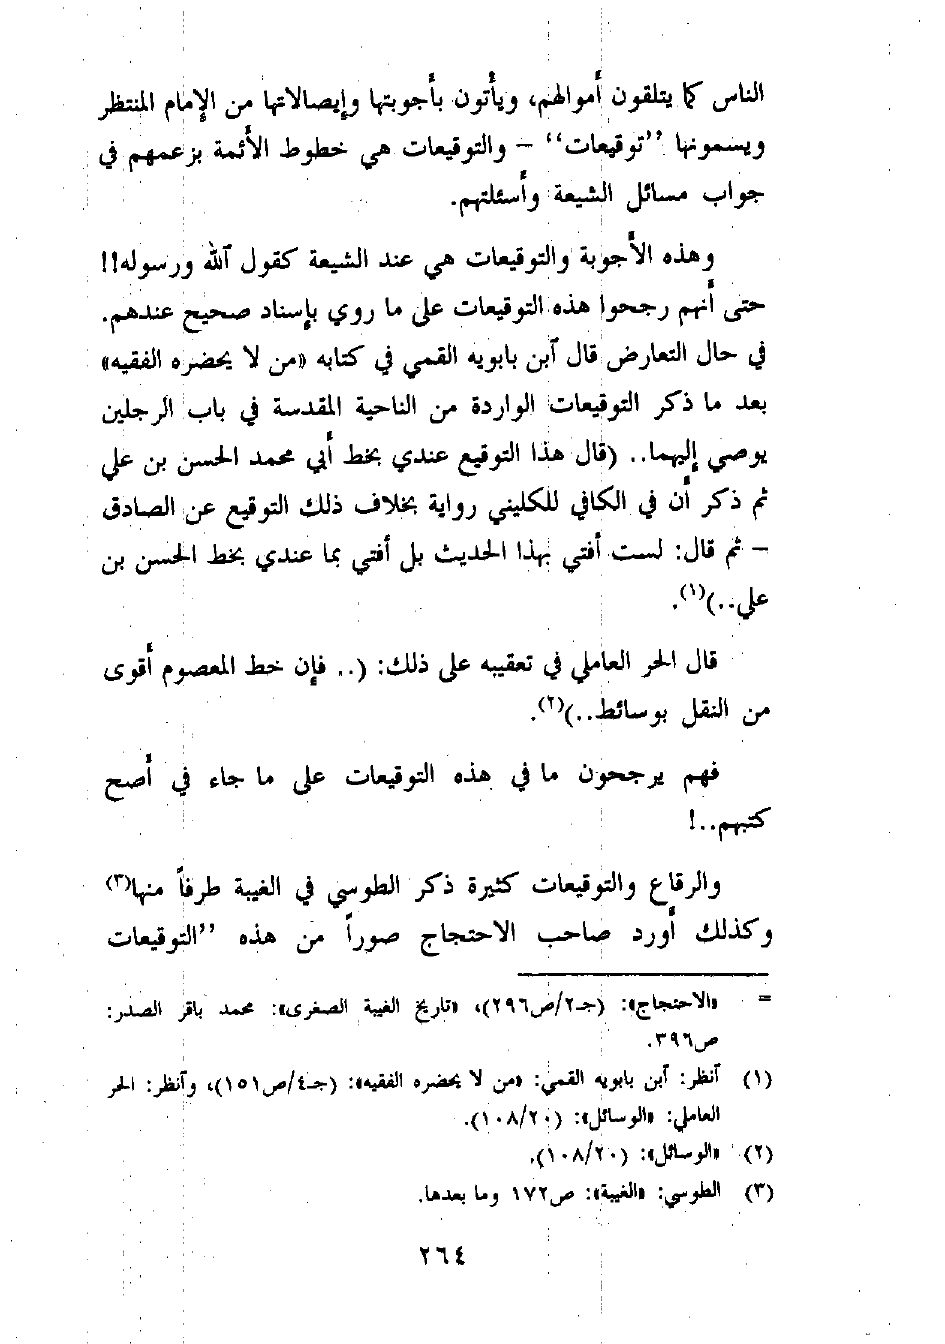 الناس كما يتلقون أموالهم، ويأتون بأجوبتها وإيصالاتها من الإمام المنتظر
ويسمونها ”توقيعات“ – والتوقيعات هي خطوط الأئمة بزعمهم في
جواب مسائل الشيعة وأسئلتهم.
وهذه الأجوبة والتوقيعات هي عند الشيعة كقول آلله ورسوله!!
حتى أنهم رجحوا هذه التوقيعات على ما روي بإسناد صحيح عندهم.
في حال التعارض قال آبن بابويه القمي في كتابه «من لا يحضره الفقيه»
بعد ما ذكر التوقيعات الواردة من الناحية المقدسة في باب الرجلين
يوصي إليهما.. (قال هذا التوقيع عندي بخط أبي محمد الحسن بن علي
ثم ذكر أن في الكافي للكليني رواية بخلاف ذلك التوقيع عن الصادق
– ثم قال: لست أفتي بهذا الحديث بل أفتي بما عندي بخط الحسن بن
علي..)(١).
قال الحر العاملي في تعقيبه على ذلك: (.. فإن خط المعصوم أقوى
من النقل بوسائط..)(٢).
فهم يرجحون ما في هذه التوقيعات على ما جاء في أصح
كتبهم..!
والرقاع والتوقيعات كثيرة ذكر الطوسي في الغيبة طرفاً منها(٣)
وكذلك أورد صاحب الاحتجاج صوراً من هذه ”التوقيعات
= «الاحتجاج»: (جـ٢/ص٢٩٦)، «تاريخ الغيبة الصغرى»: محمد باقر الصدر:
ص٣٩٦.
(١) آنظر: آبن بابويه القمي: «من لا يحضره الفقيه»: (جـ٤/ص١٥١)، وآنظر: الحر
العاملي: «الوسائل»: (١٠٨/٢٠).
(٢) «الوسائل»: (١٠٨/٢٠).
(٣) الطوسي: «الغيبة»: ص١٧٢ وما بعدها.
٢٦٤